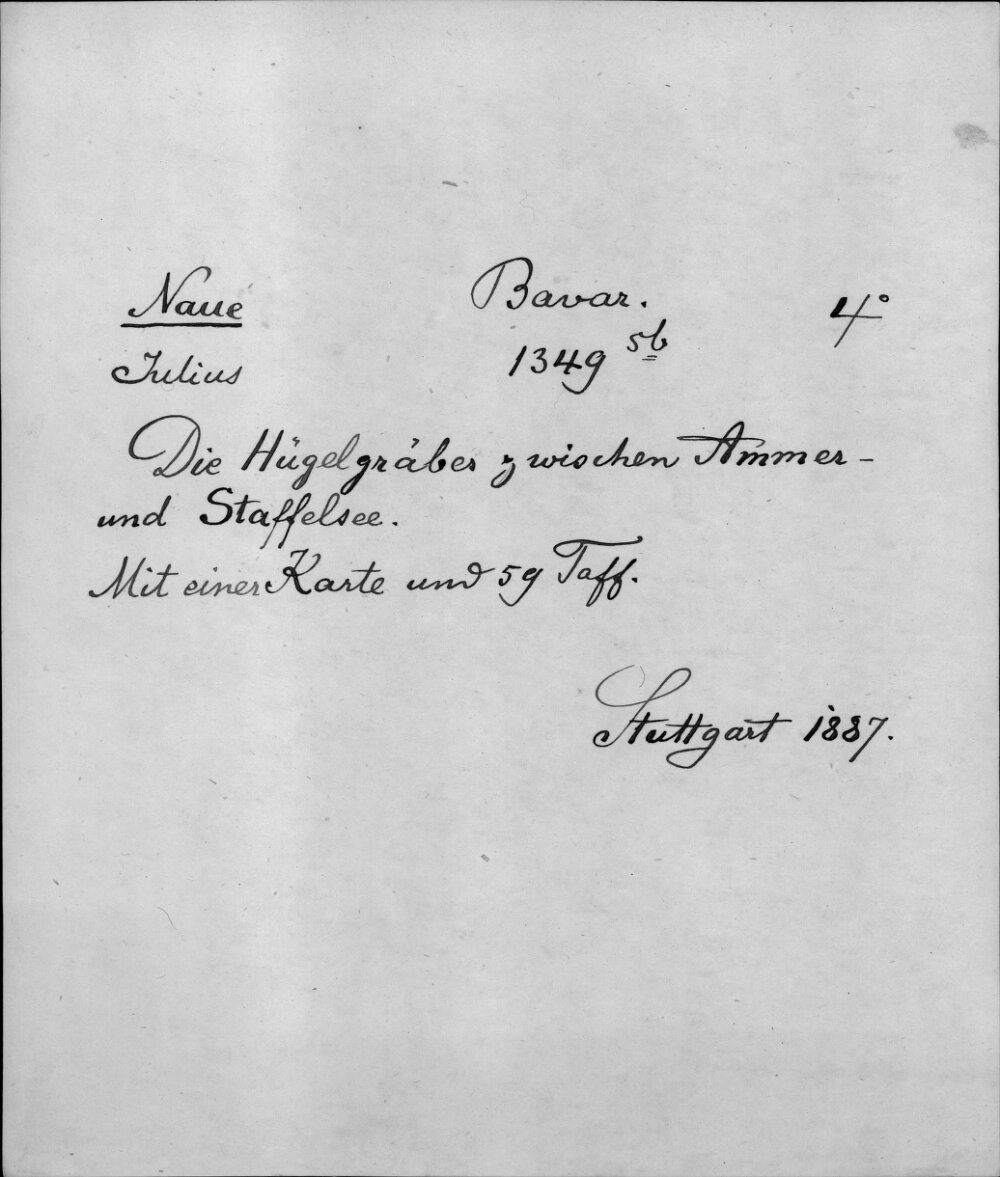 Naue Bavar. 4°
Julius 1349 5b
Die Hügelgräber zwischen Ammer-
und Staffelsee.
Mit einer Karte und 59 Taff.
Stuttgart 1887.